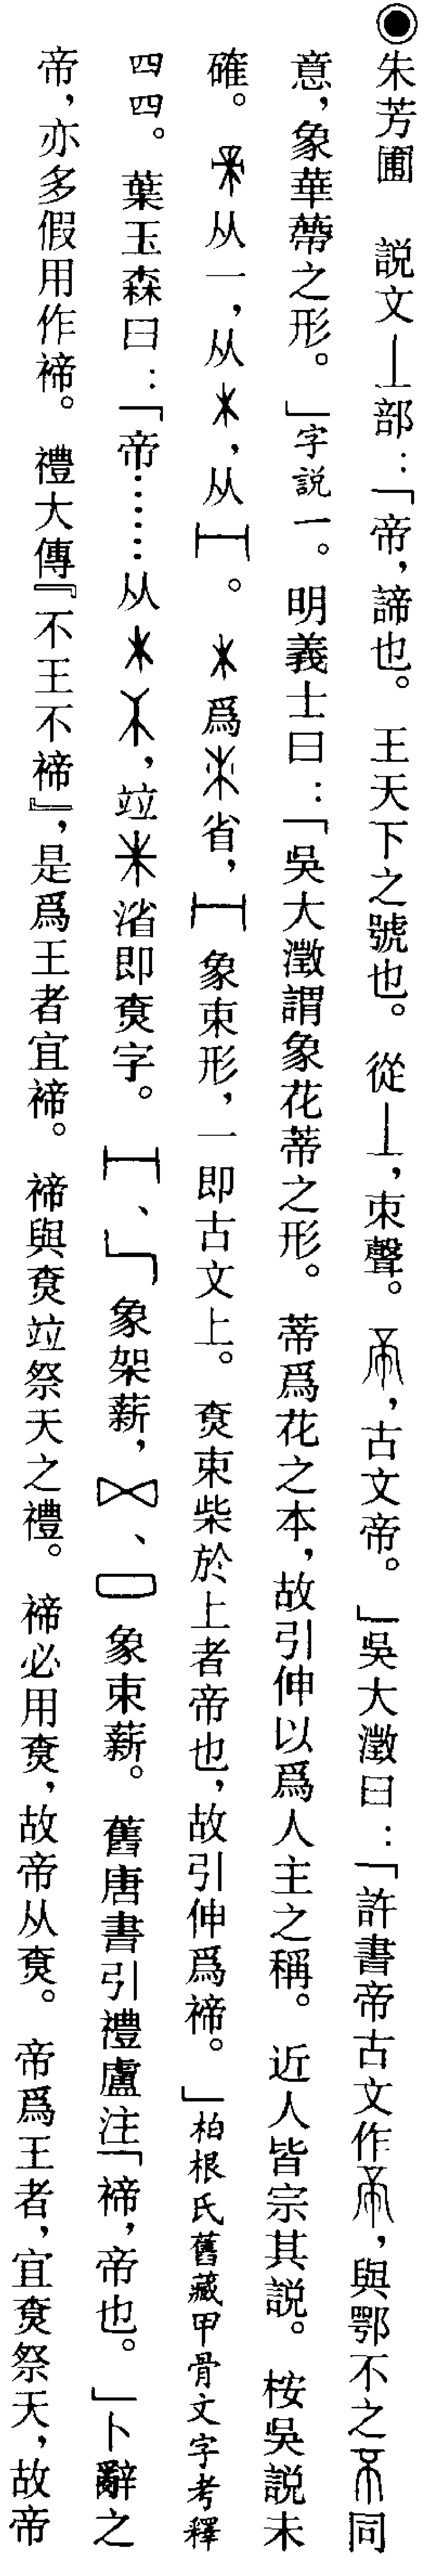 ◉朱芳圃　説文丄部：「帝，諦也。王天下之號也。從丄，朿聲。，古文帝。」吳大澂曰：「許書帝古文作，與鄂不之同
意，象華蔕之形。」字説一。明義士曰：「吳大澂謂象花蒂之形。蒂爲花之本，故引伸以爲人主之稱。近人皆宗其説。桉吳説未
確。从一，从，从。爲省，象束形，一即古文上。尞束柴於上者帝也，故引伸爲禘。」柏根氏舊藏甲骨文字考釋
四四。葉玉森曰：「帝……从，竝渻即尞字。、象架薪，、象束薪。舊唐書引禮盧注「禘，帝也。」卜辭之
帝，亦多假用作禘。禮大傳『不王不禘』，是爲王者宜禘。禘與尞竝祭天之禮。禘必用尞，故帝从尞。帝爲王者，宜尞祭天，故帝